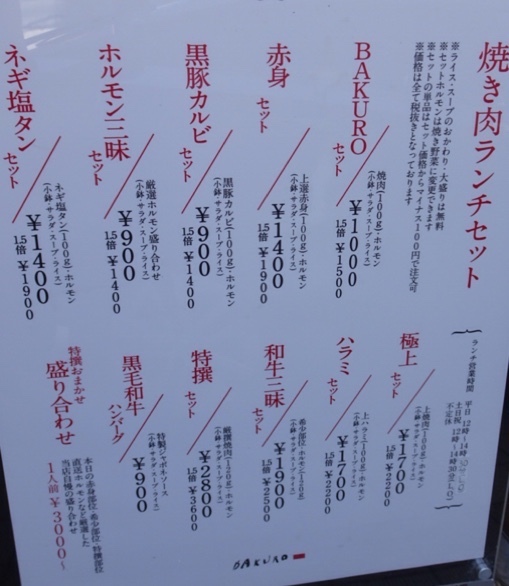 焼き肉ランチセット
※ライス・スープのおかわり・大盛りは無料
※セットホルモンは焼き野菜に変更できます
※セットの単品はセット価格からマイナス100円で注文可
※価格は全て税抜きとなっております
BAKUROセット
焼肉(100g)・ホルモン
(小鉢・サラダ・スープ・ライス)
¥1000
1.5倍 ¥1500
赤身セット
上選赤身(100g)・ホルモン
(小鉢・サラダ・スープ・ライス)
¥1400
1.5倍 ¥1900
黒豚カルビセット
黒豚カルビ(100g)・ホルモン
(小鉢・サラダ・スープ・ライス)
¥900
1.5倍 ¥1400
ホルモン三昧セット
厳選ホルモン盛り合わせ
(小鉢・サラダ・スープ・ライス)
¥900
1.5倍 ¥1400
ネギ塩タンセット
ネギ塩タン(100g)・ホルモン
(小鉢・サラダ・スープ・ライス)
¥1400
1.5倍 ¥1900
ランチ営業時間
平日 12時〜14時
土日祝 12時〜14時30分(L.O)
不定休
極上セット
上焼肉(100g)・ホルモン
(小鉢・サラダ・スープ・ライス)
¥1700
1.5倍 ¥2200
ハラミセット
上ハラミ(100g)・ホルモン
(小鉢・サラダ・スープ・ライス)
¥1700
1.5倍 ¥2200
和牛三昧セット
希少部位・ホルモン(120g)
(小鉢・サラダ・スープ・ライス)
¥1900
1.5倍
特撰セット
厳撰焼肉(120g)・ホルモン
(小鉢・サラダ・スープ・ライス)
¥2800
1.5倍 ¥3600
黒毛和牛ハンバーグ
特製ジャポネソース
(小鉢・サラダ・スープ・ライス)
¥900
特撰おまかせ
盛り合わせ
本日の赤身部位・希少部位・特撰部位
直送ホルモンなど厳選した
当店自慢の盛り合わせ
1人前 ¥3000〜
BAKURO